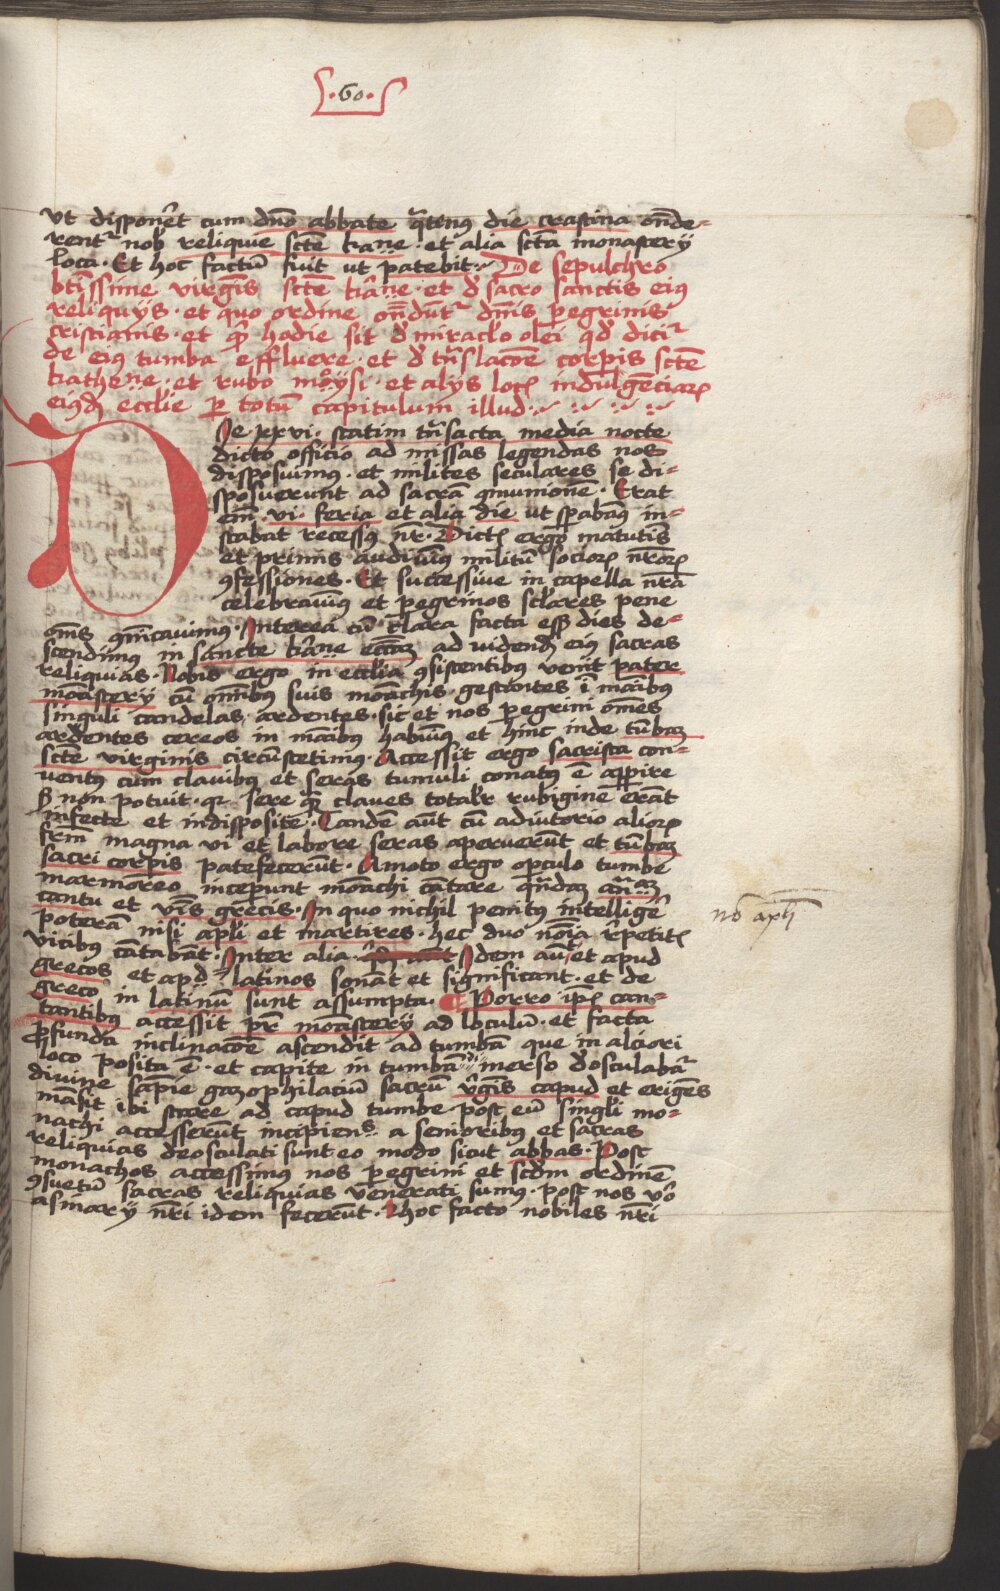 .60.
ut disponeret cum dno abbate qtenus die crastina onde-
rent nob reliquie scte kane . et alia scta monastery
loca . Et hoc factu fuit ut patebit . De sepulchro
btissime virgis scte kane . et d sacro sanctis eius
reliquys . et quo ordine ondunt dnis pegrinis
cristianis . et qr hodie sit d miraclo olei qd dicit
de eius tumba effluere . et d tnslacoe corpis scte
kathene . et rubo moysi . et alys loc indulgenciar
eiusd ecclie p totu capitulum illud .
Die xxvi . statim tnsacta media nocte
dicto officio ad missas legendas nos
disposuimus . et milites seculares se di-
sposuerunt ad sacra 9munione . Erat
em vi . feria et alia die ut spabam9 in-
stabat recessus nr . Dictis ergo matutis
et primis audivim9 militu socior nror
9fessiones . Et successive in capella nra
celebravim9 et pegrinos sclares pene
oms 9micavimus . Interea cu clara facta esset dies de-
scendimus in sancte kane eccam ad videnda eius sacras
reliquias . Nobis ergo in ecclia 9sistentibus venit pater
monastery cu omibus suis monachis . gestantes i maibus
singuli candelas ardentes . sic et nos pegrini omes
ardentes cereos in maibus habuim9 et hinc inde tumbam
scte virginis circustetimus . Accessit ergo sacrista con-
ventus cum clavibus et seras tumuli conatus e appire
S non potuit . qr sere quam claves totalr rubigine erant
infecte et indisposite . Tande aut cu adiutorio alior
frm magna vi et labore seras aperuerut et tumbam
sacri corpis patefecerut . Amoto ergo opculo tumbe
marmoreo inceperunt moachi catare quada anam
cantu et vis grecis . In quo nichil penitus intellige
potera nisi apli et martires . hec duo noia repetitis
vicibus catabat . Inter alia . Idem aut et apud
grecos et apd latinos sonat et significant . et de
greco in latinu sunt assumpta . Porro ipis can-
tantibus accessit pr monastery ad loculu . et facta
profunda inclinacoe ascendit ad tumba que in alciori
loco posita e . et capite in tumba merso dosculabat
divine sapie gazophilaciu sacru virgis capud et eriges
masit ibi stare ad capud tumbe . post eu singli mo-
nachi accesserut incipiens a senioribus et sacras
reliquias deosculati sunt eo modo sicut abbas . Post
monachos accessimus nos pegrini et scdm ordine
9suetu sacras reliquias venerati sumus . post nos vo
asinary nri idem fecerut . Ihoc facto nobiles nri